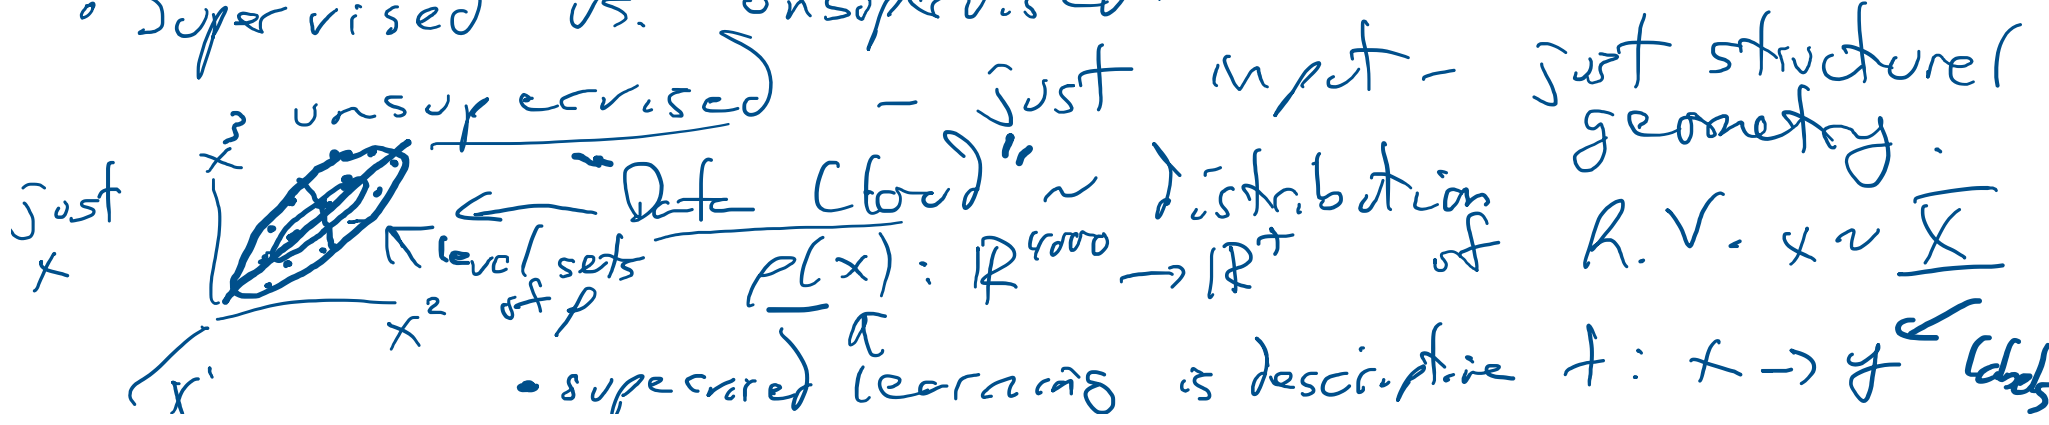 • Supervised vs. unsupervised
unsupervised - just input - just structure/
geometry.
just x
x³
x²
x¹
"Data Cloud" ~ distribution of R.V. x ~ X
level sets of p
p(x) : ℝ⁴⁰⁰⁰ → ℝ⁺
• supervised learning is descriptive f : x → y
labels